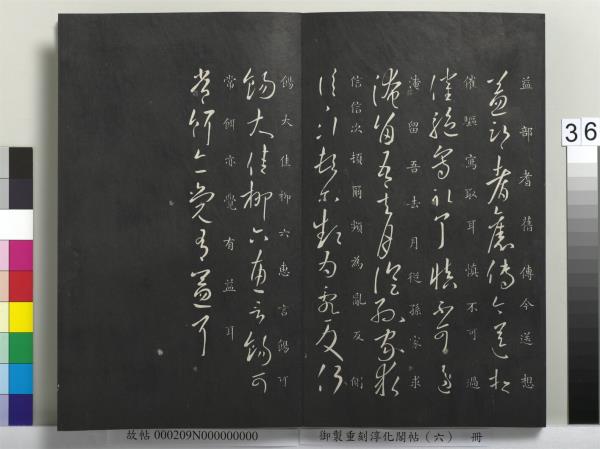 益部耆舊傳今送想
催驅寫取耳慎不可過
淹留吾去月從孫家求
信信次頓爾頻為亂反側
餳大佳柳六惠言餳可
常餌亦覺有益耳
36
故帖 000209N000000000 御製重刻淳化閣帖（六） 冊